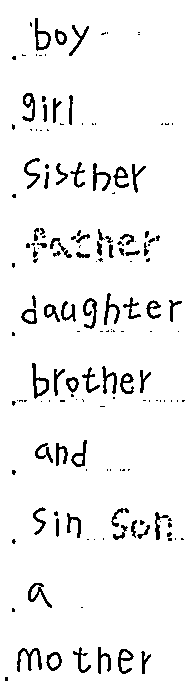 boy
girl
Sisther
father
daughter
brother
and
Sin Son
a
mother